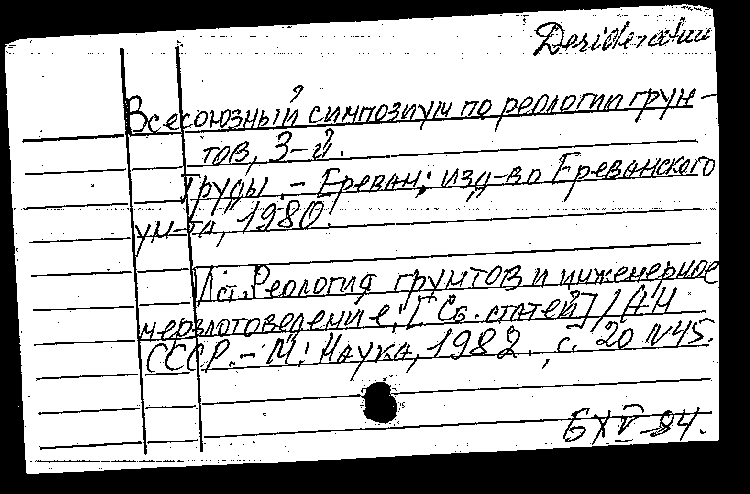 Desideratum
Всесоюзный симпозиум по реологии грун-
тов, 3-й.
Труды. - Ереван: изд-во Ереванского
ун-та, 1980.
Ист. Реология грунтов и инженерное
мерзлотоведение: [Сб. статей] / АН
СССР. - М: Наука, 1982. , с. 20 N45.